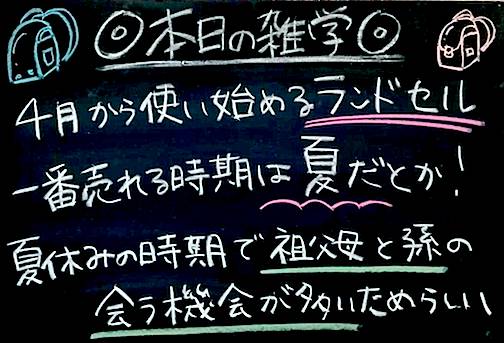 ◎本日の雑学◎
4月から使い始めるランドセル
一番売れる時期は夏だとか!
夏休みの時期で祖父母と孫の
会う機会が多いためらしい